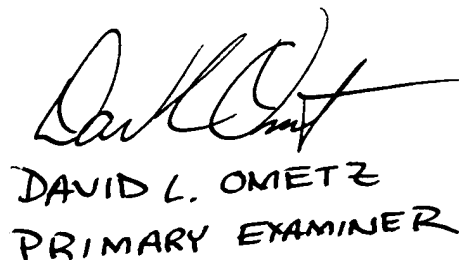 David Ometz
DAVID L. OMETZ
PRIMARY EXAMINER